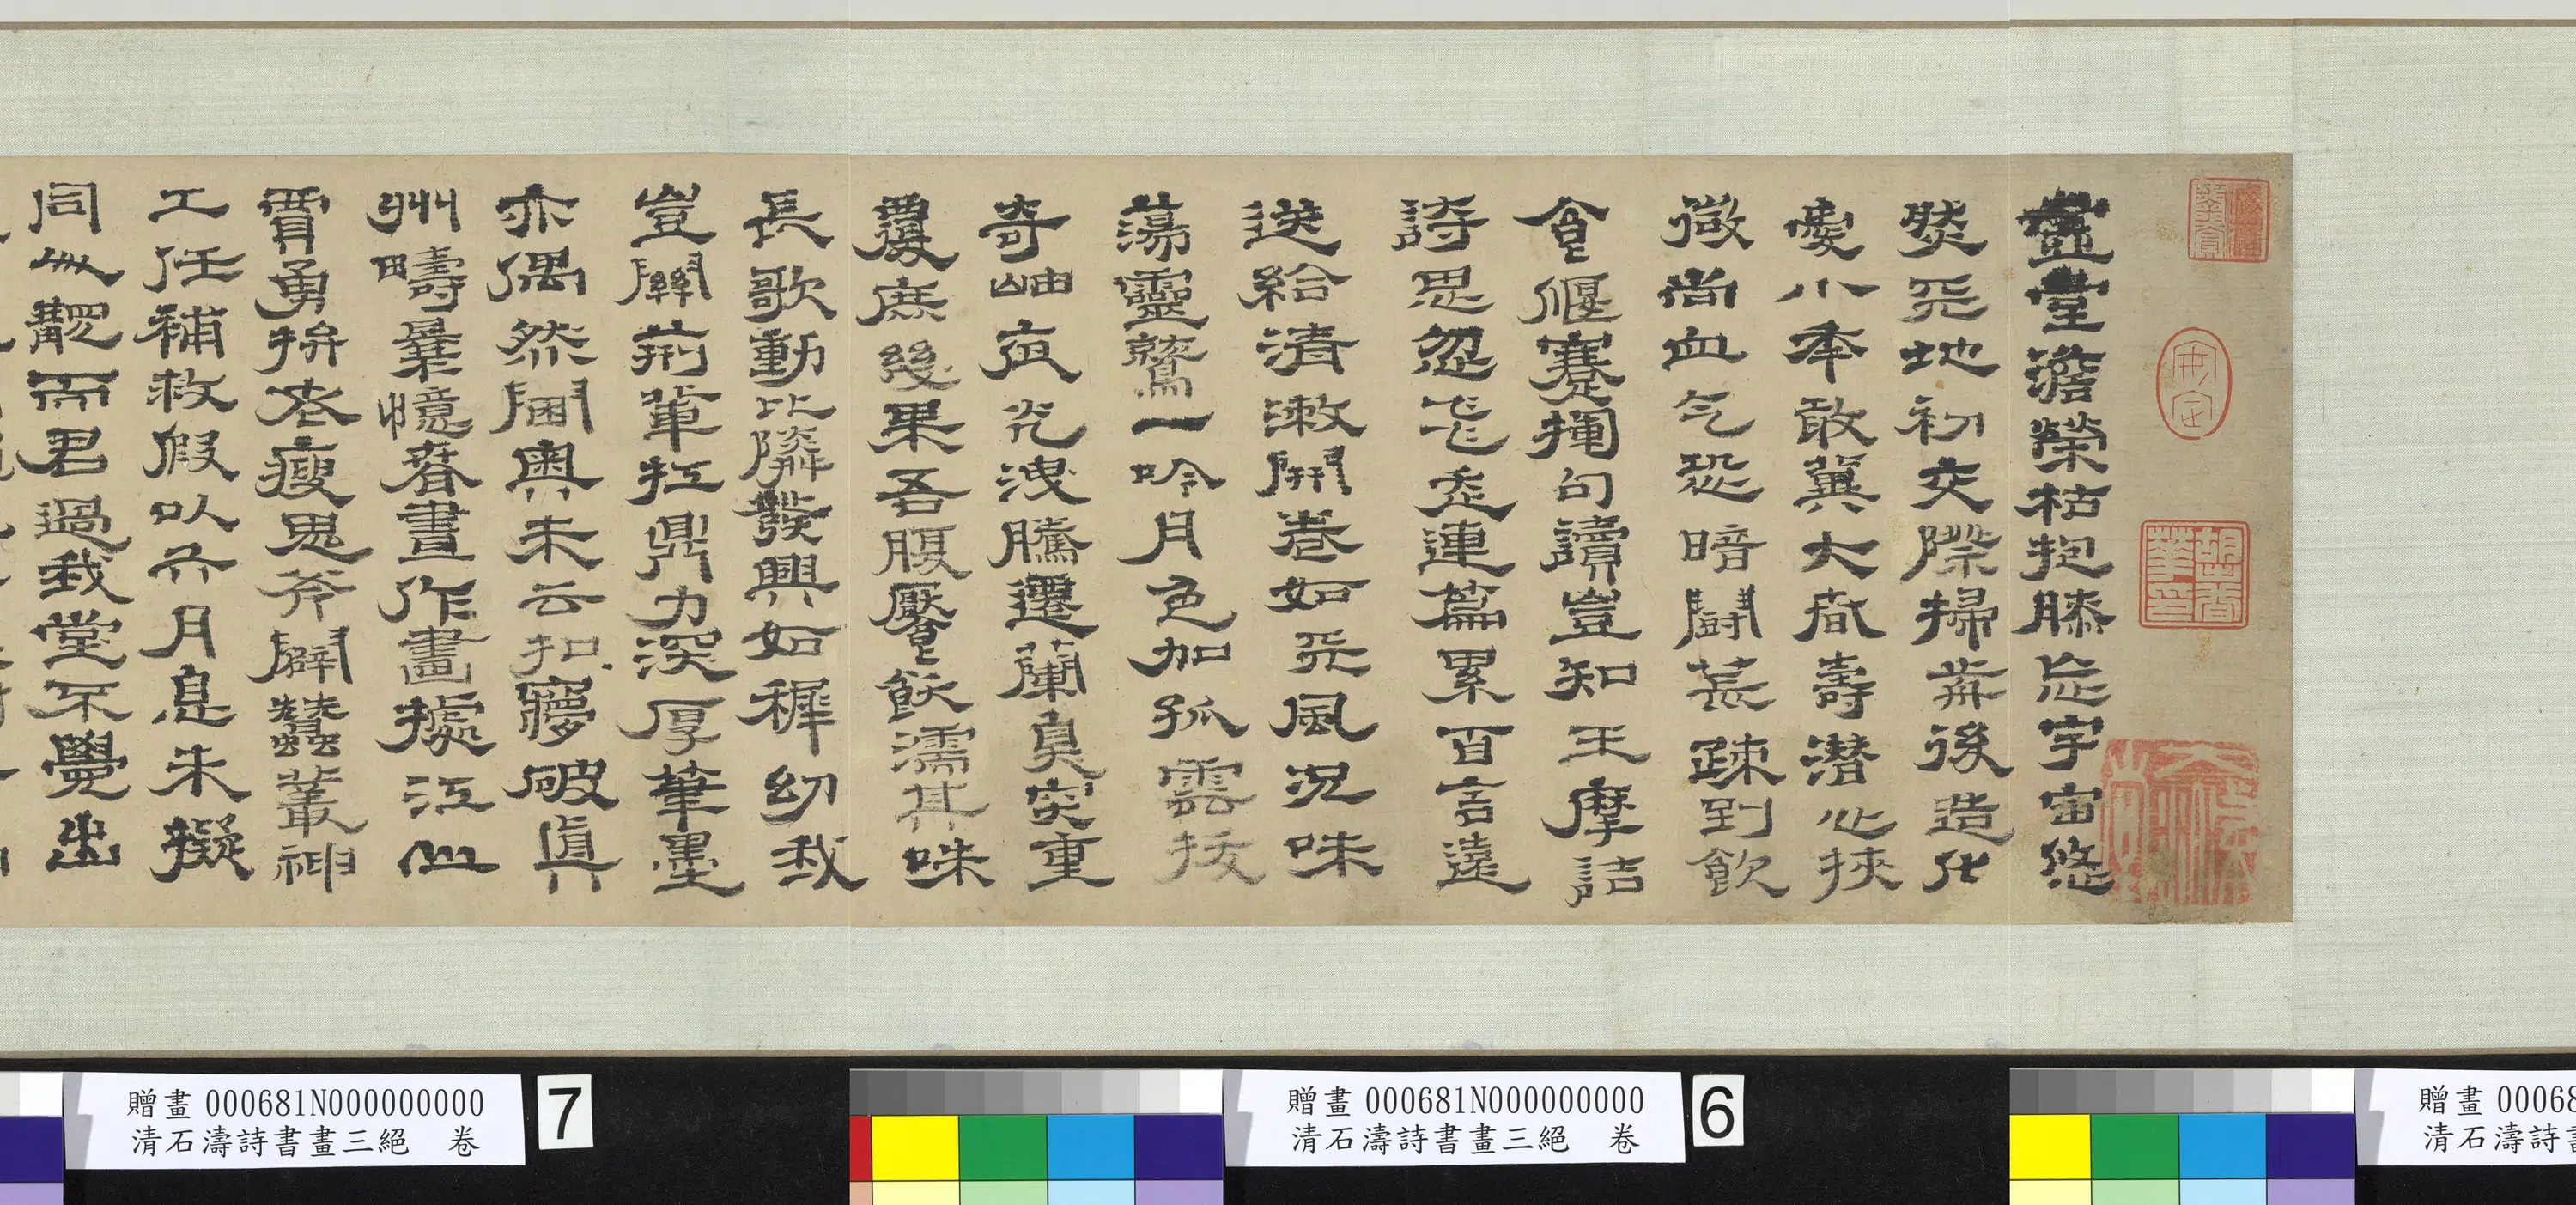 虛堂澹榮枯抱膝忘宇宙悠
然天地初交際掃前後造化
憂小年敢冀大春壽潛心狹
微尚血气恐暗鬭荒疎到飲
食偃蹇句讀豈知王摩詰
詩思忽飛走連篇累百言遠
送給清漱開卷如天風況味
蕩靈鷲一吟月色加孤雲接
奇岫夜光洩騰遷蘭臭突重
覆庶幾果吾腹饜飫濡其味
長歌動比鄰發興如穉幼我
豈關荊輩扛鼎力深厚筆墨
亦偶然閫奧未云扣夢破真
州疇曩憶春晝作畫據江山
賈勇拚老瘦鬼斧闢蠶叢神
工任補救假以六月息未擬
同此靦而君過我堂不覺出
贈畫 000681N000000000
清石濤詩書畫三絕 卷
7
贈畫 000681N000000000
清石濤詩書畫三絕 卷
6
贈畫 00068
清石濤詩